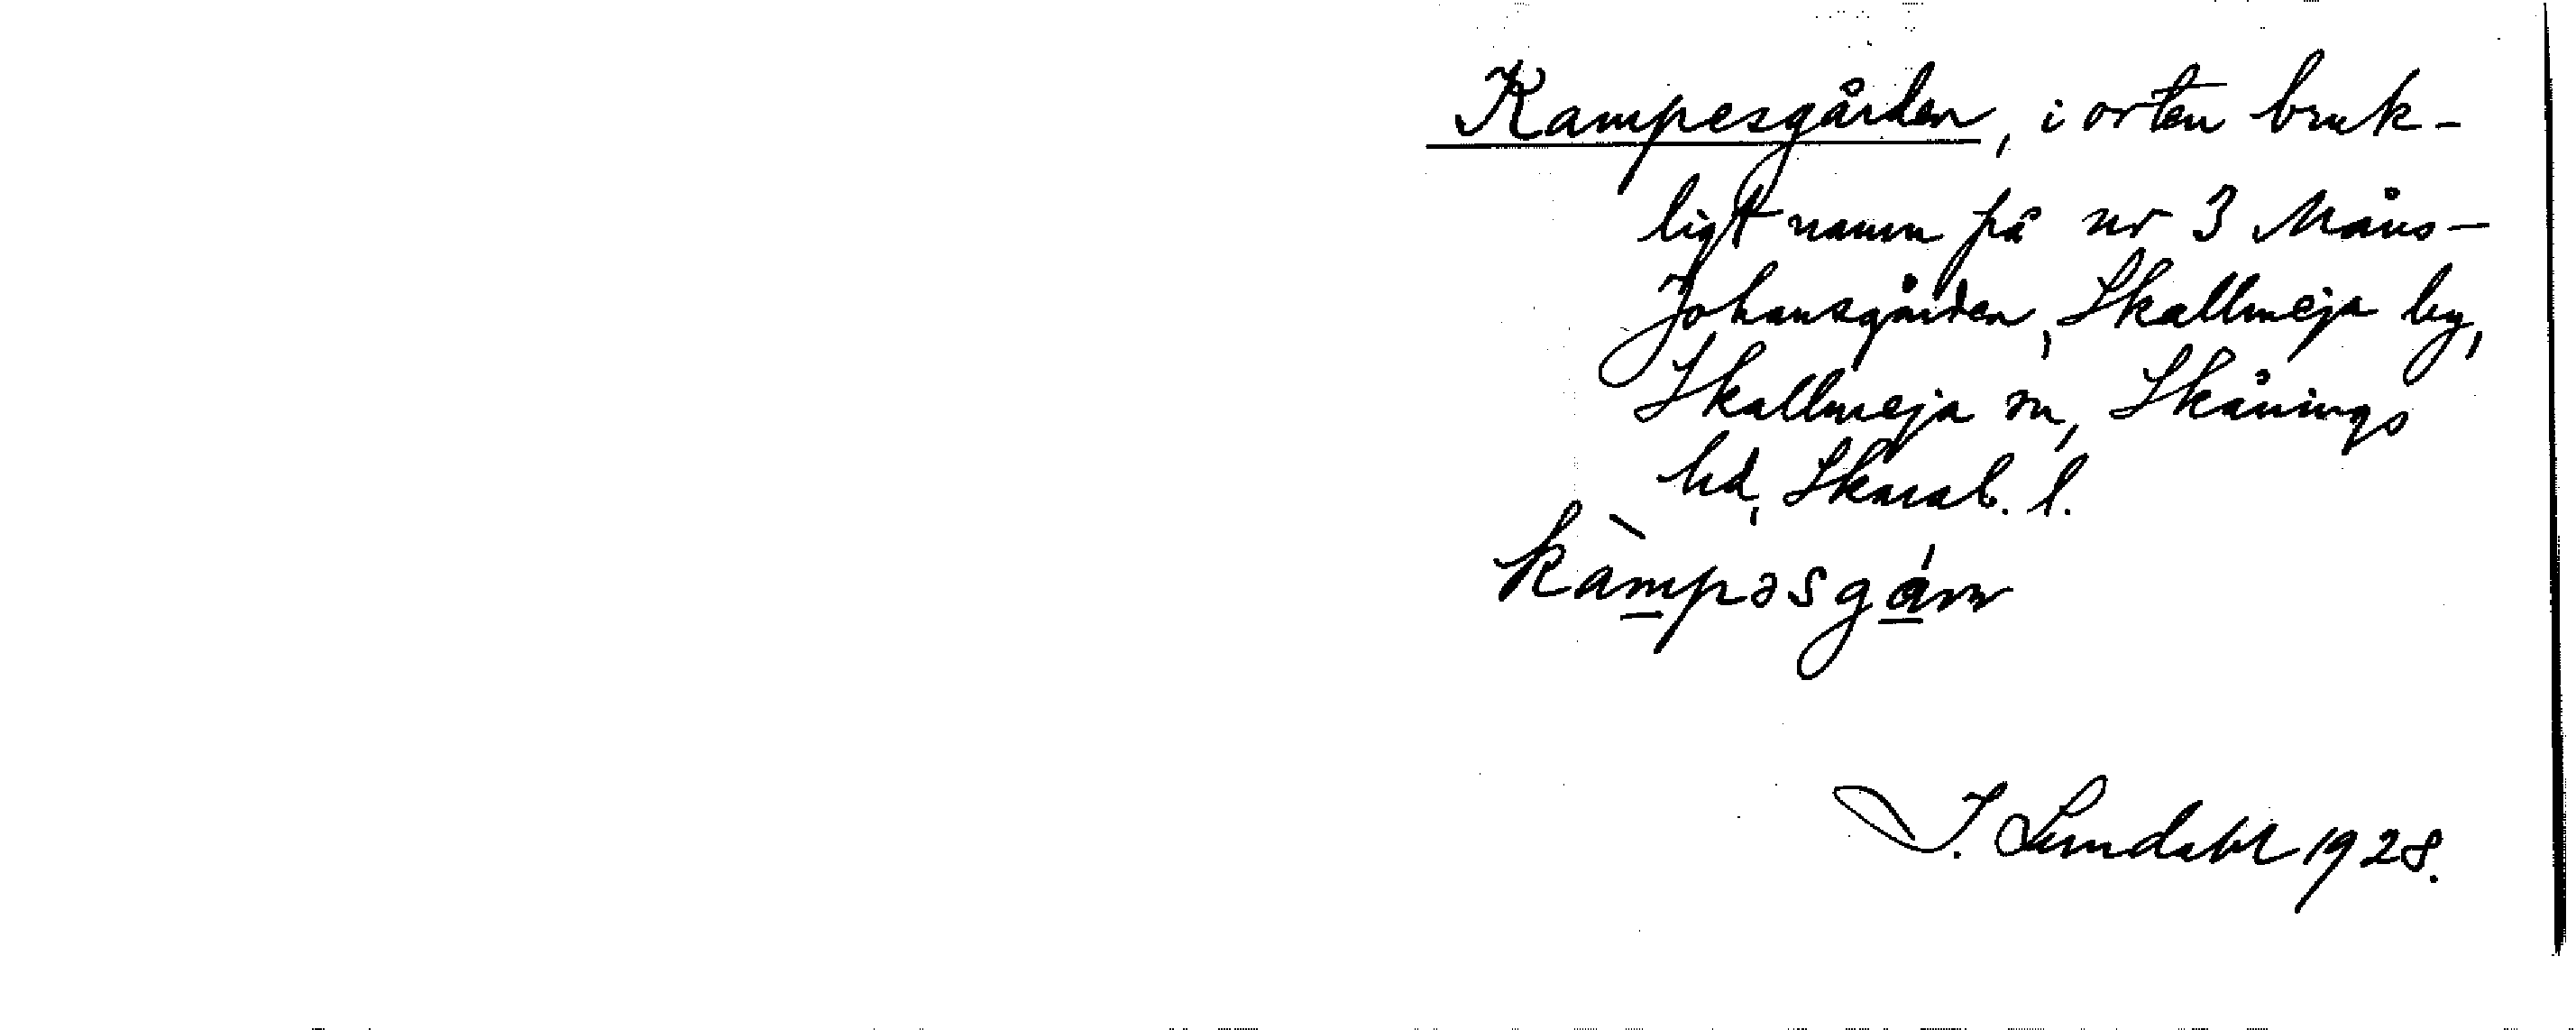 Kampesgården, i orten bruk-
ligt namn på nr 3 Måns-
Johansgården, Skallmeja by,
Skallmeja sn, Skånings
hd, Skarab. l.
kàmpəsgáɳ
I. Lundahl 1928.